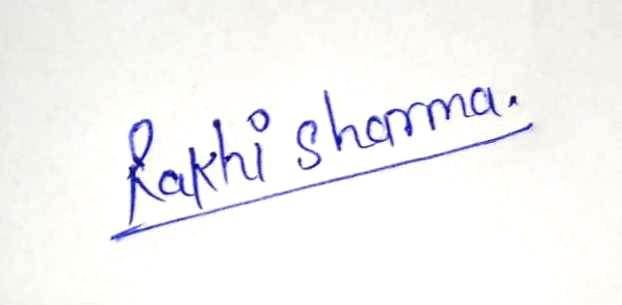 Rakhi sharma.